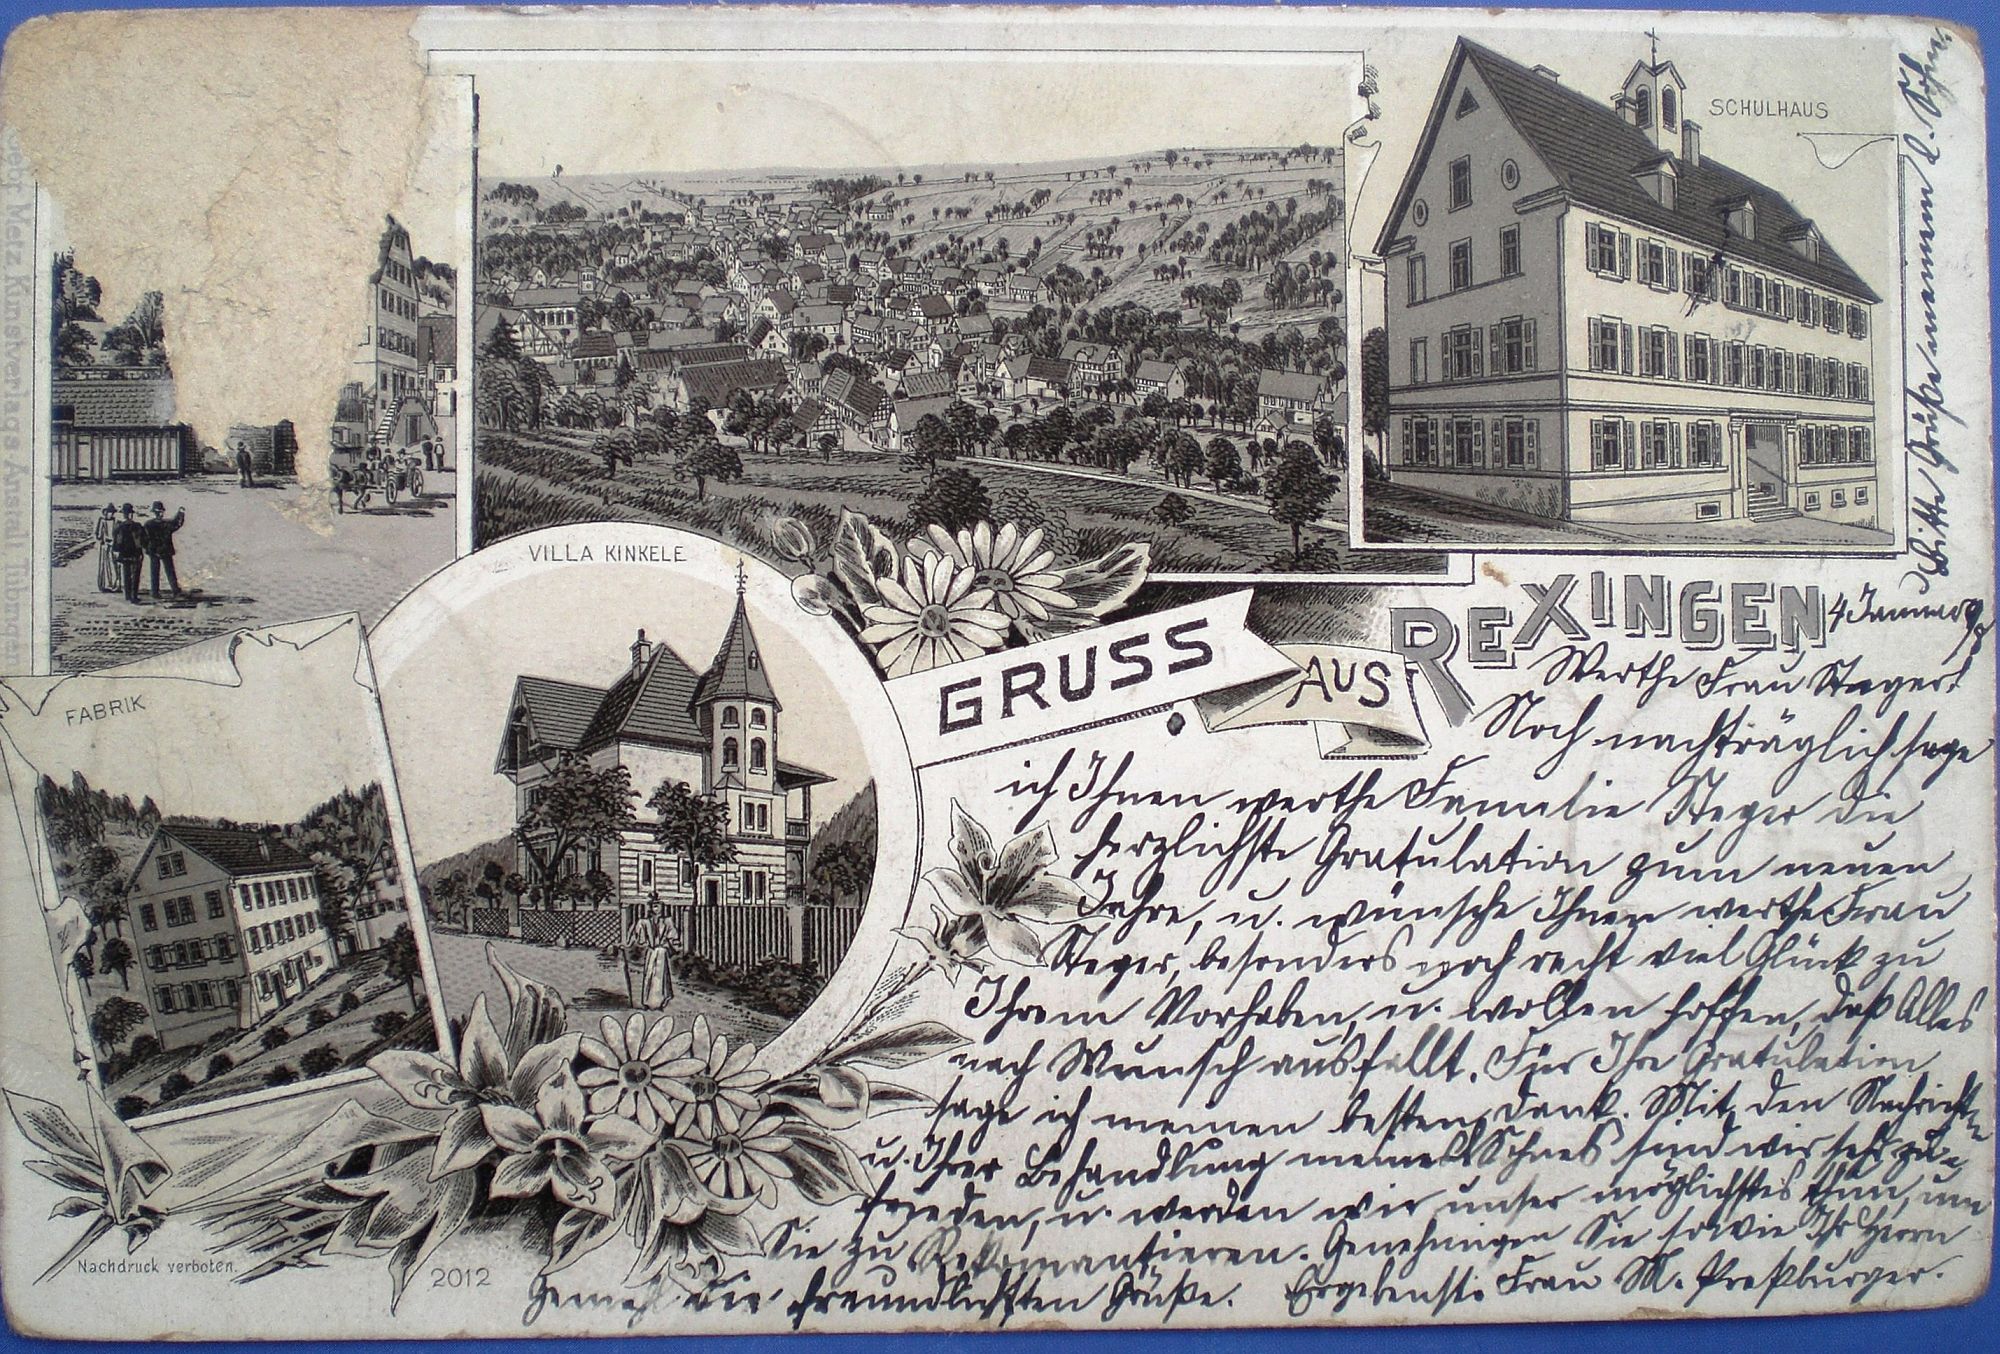 SCHULHAUS
VILLA KINKELE
FABRIK
GRUSS AUS REXINGEN
4 Januar
Werthe Frau Steger!
Noch nachträglich sage
ich Ihnen werthe Familie Steger die
herzlichste Gratulation zum neuen
Jahre, u. wünsche Ihnen werthe Frau
Steger, besonders noch recht viel Glück zu
Ihrem Vorhaben, u. wollen hoffen, daß Alles
nach Wunsch ausfallt. Für Ihre Gratulation,
sage ich meinen besten Dank. Mit den Nachrichten
u. Ihrer Behandlung meines Sohnes sind wir sehr zu-
frieden, u. werden wir unser möglichstes thun, um
Sie zu Rekomantieren. Genehmigen Sie sowie Ihr Herrn
Gemahl die freundlichsten Grüße. Ergebenst. Frau M. Preßburger.
Bitte Grüße meinen l. Sohn.
Gebr Metz, Kunstverlags Anstalt Tübingen
Nachdruck verboten.
2012